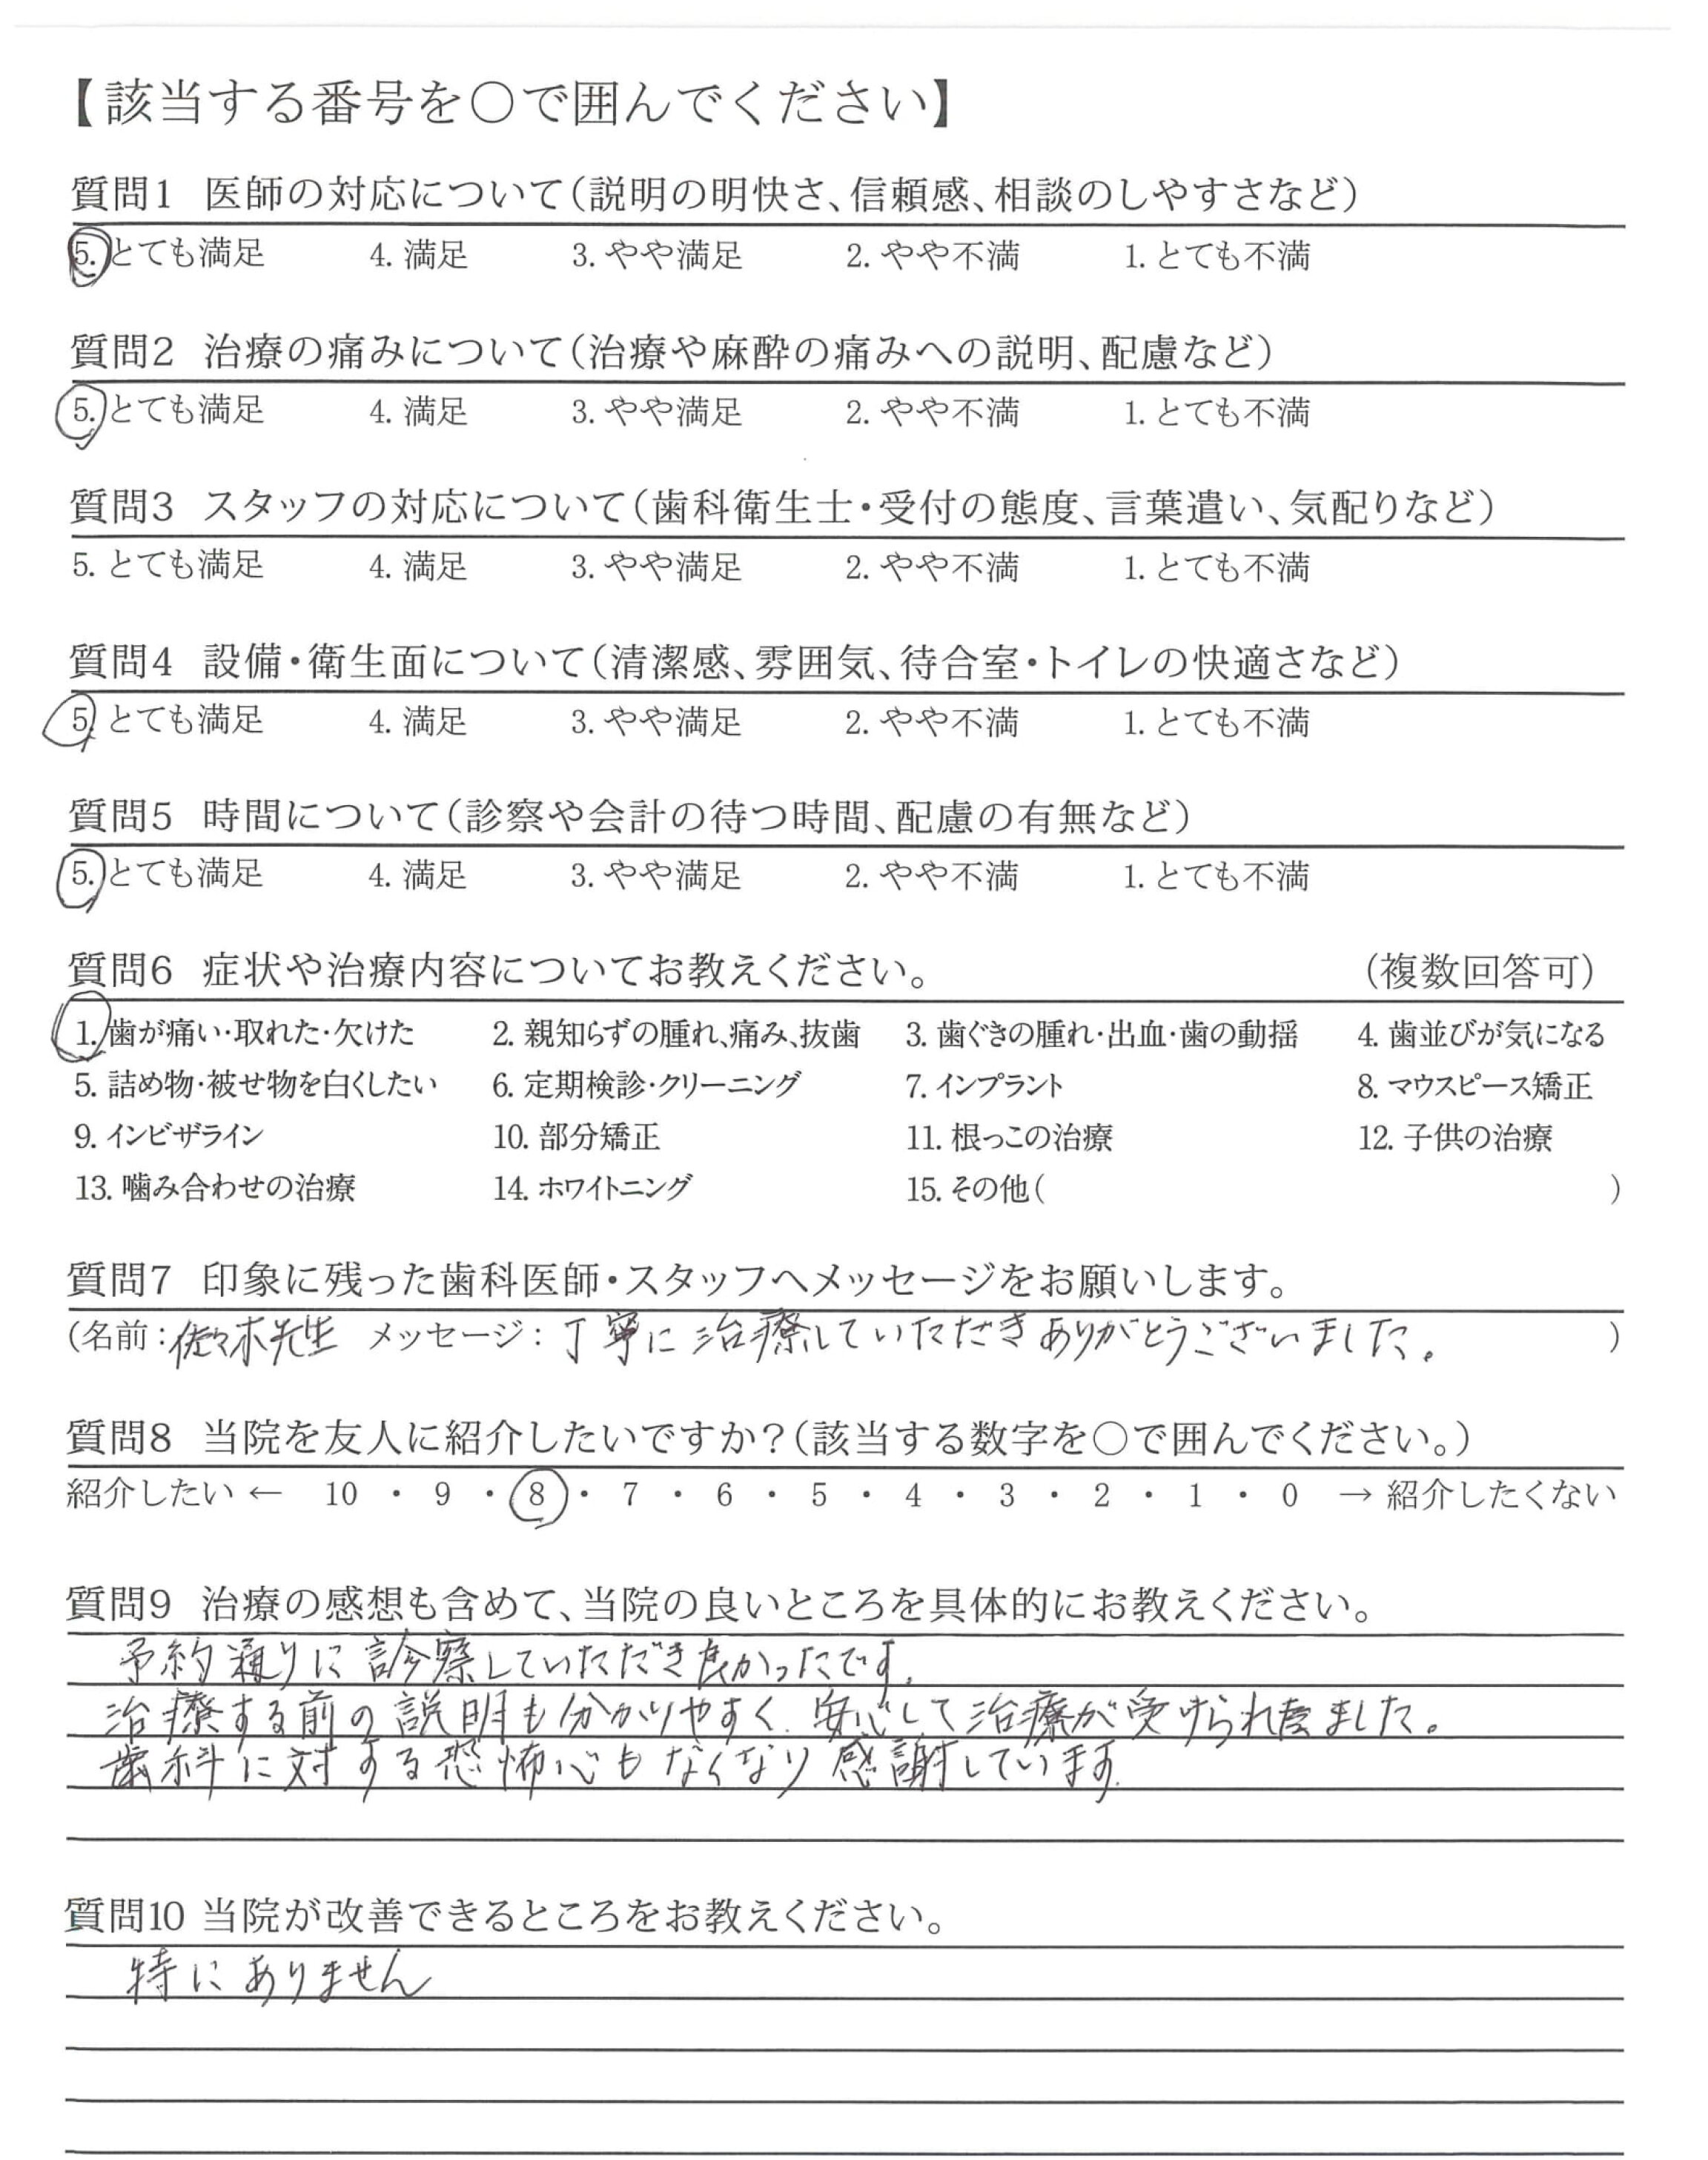 【該当する番号を○で囲んでください】
質問1 医師の対応について(説明の明快さ、信頼感、相談のしやすさなど)
5. とても満足 4. 満足 3. やや満足 2. やや不満 1. とても不満
質問2 治療の痛みについて(治療や麻酔の痛みへの説明、配慮など)
5. とても満足 4. 満足 3. やや満足 2. やや不満 1. とても不満
質問3 スタッフの対応について(歯科衛生士・受付の態度、言葉遣い、気配りなど)
5. とても満足 4. 満足 3. やや満足 2. やや不満 1. とても不満
質問4 設備・衛生面について(清潔感、雰囲気、待合室・トイレの快適さなど)
5. とても満足 4. 満足 3. やや満足 2. やや不満 1. とても不満
質問5 時間について(診察や会計の待つ時間、配慮の有無など)
5. とても満足 4. 満足 3. やや満足 2. やや不満 1. とても不満
質問6 症状や治療内容についてお教えください。 (複数回答可)
1. 歯が痛い・取れた・欠けた 2. 親知らずの腫れ、痛み、抜歯 3. 歯ぐきの腫れ・出血・歯の動揺 4. 歯並びが気になる
5. 詰め物・被せ物を白くしたい 6. 定期検診・クリーニング 7. インプラント 8. マウスピース矯正
9. インビザライン 10. 部分矯正 11. 根っこの治療 12. 子供の治療
13. 噛み合わせの治療 14. ホワイトニング 15. その他( )
質問7 印象に残った歯科医師・スタッフへメッセージをお願いします。
(名前:佐々木先生 メッセージ:丁寧に治療していただきありがとうございました。 )
質問8 当院を友人に紹介したいですか?(該当する数字を○で囲んでください。)
紹介したい ← 10 ・ 9 ・ 8 ・ 7 ・ 6 ・ 5 ・ 4 ・ 3 ・ 2 ・ 1 ・ 0 → 紹介したくない
質問9 治療の感想も含めて、当院の良いところを具体的にお教えください。
予約通りに診察していただき良かったです。
治療する前の説明も分かりやすく、安心して治療が受けられました。
歯科に対する恐怖心もなくなり感謝しています。
質問10 当院が改善できるところをお教えください。
特にありません